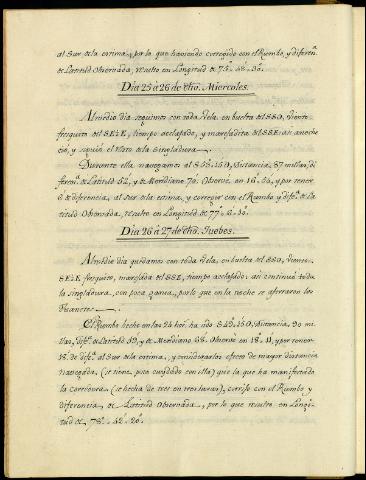 al Sur de la estima, por lo que haviendo corregido con el Rumbo, y diferen.ª
de Latitud Observada, resulto en Longitud de 75º. 48'. 30".
Dia 25 á 26 de dho. Miercoles.
Al medio dia seguimos con toda Vela, en buelta del SSO, Viento
fresquito del SE¼E, tiempo acelajado, y marejadita del SSE: asi anoche-
ció, y siguió el resto de la Singladura.
Durante ella navegamos al S 35. 15 O, distancia, 87 millas, di-
feren.ª de Latitud 52', y de Meridiano 70'. Observé en 16. 36, y por tener
6' de diferencia al Sur de la estima, y corregir con el Rumbo y dif.ª de La-
titud Observada, resulto en Longitud de 77. 6. 30.
Dia 26 á 27 de dho. Juebes.
Al medio dia quedamos con toda Vela, en buelta del SSO, Viento
SE¼E fresquito, marejada del SSE, tiempo acelajado: asi continuó toda
la singladura, con poca por lo que en la noche se aferraron los
Juanetes.
El Rumbo hecho en las 24 hor.s ha sido S 45. 15 O, distancia, 90 mi-
llas, dif.ª de Latitud 59', y de Meridiano 68'. Observé en 18. 11, y por tener
18' de dif.ª al Sur de la estima, y considerarlos efecto de mayor distancia
navegada, (se tiene poco cuydado con ella) que la que ha manifestado
la corredera (se hecha de tres en tres horas), corrijo con el Rumbo y
diferencia de Latitud Observada, por lo que resulto en Longi-
tud de 78º. 42'. 20".